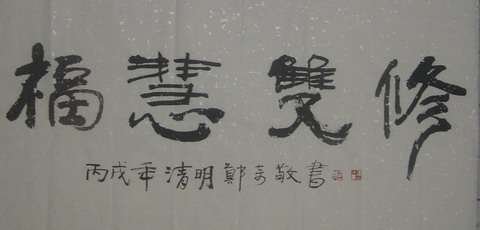 福慧雙修
丙戌年清明鄭奇敬書